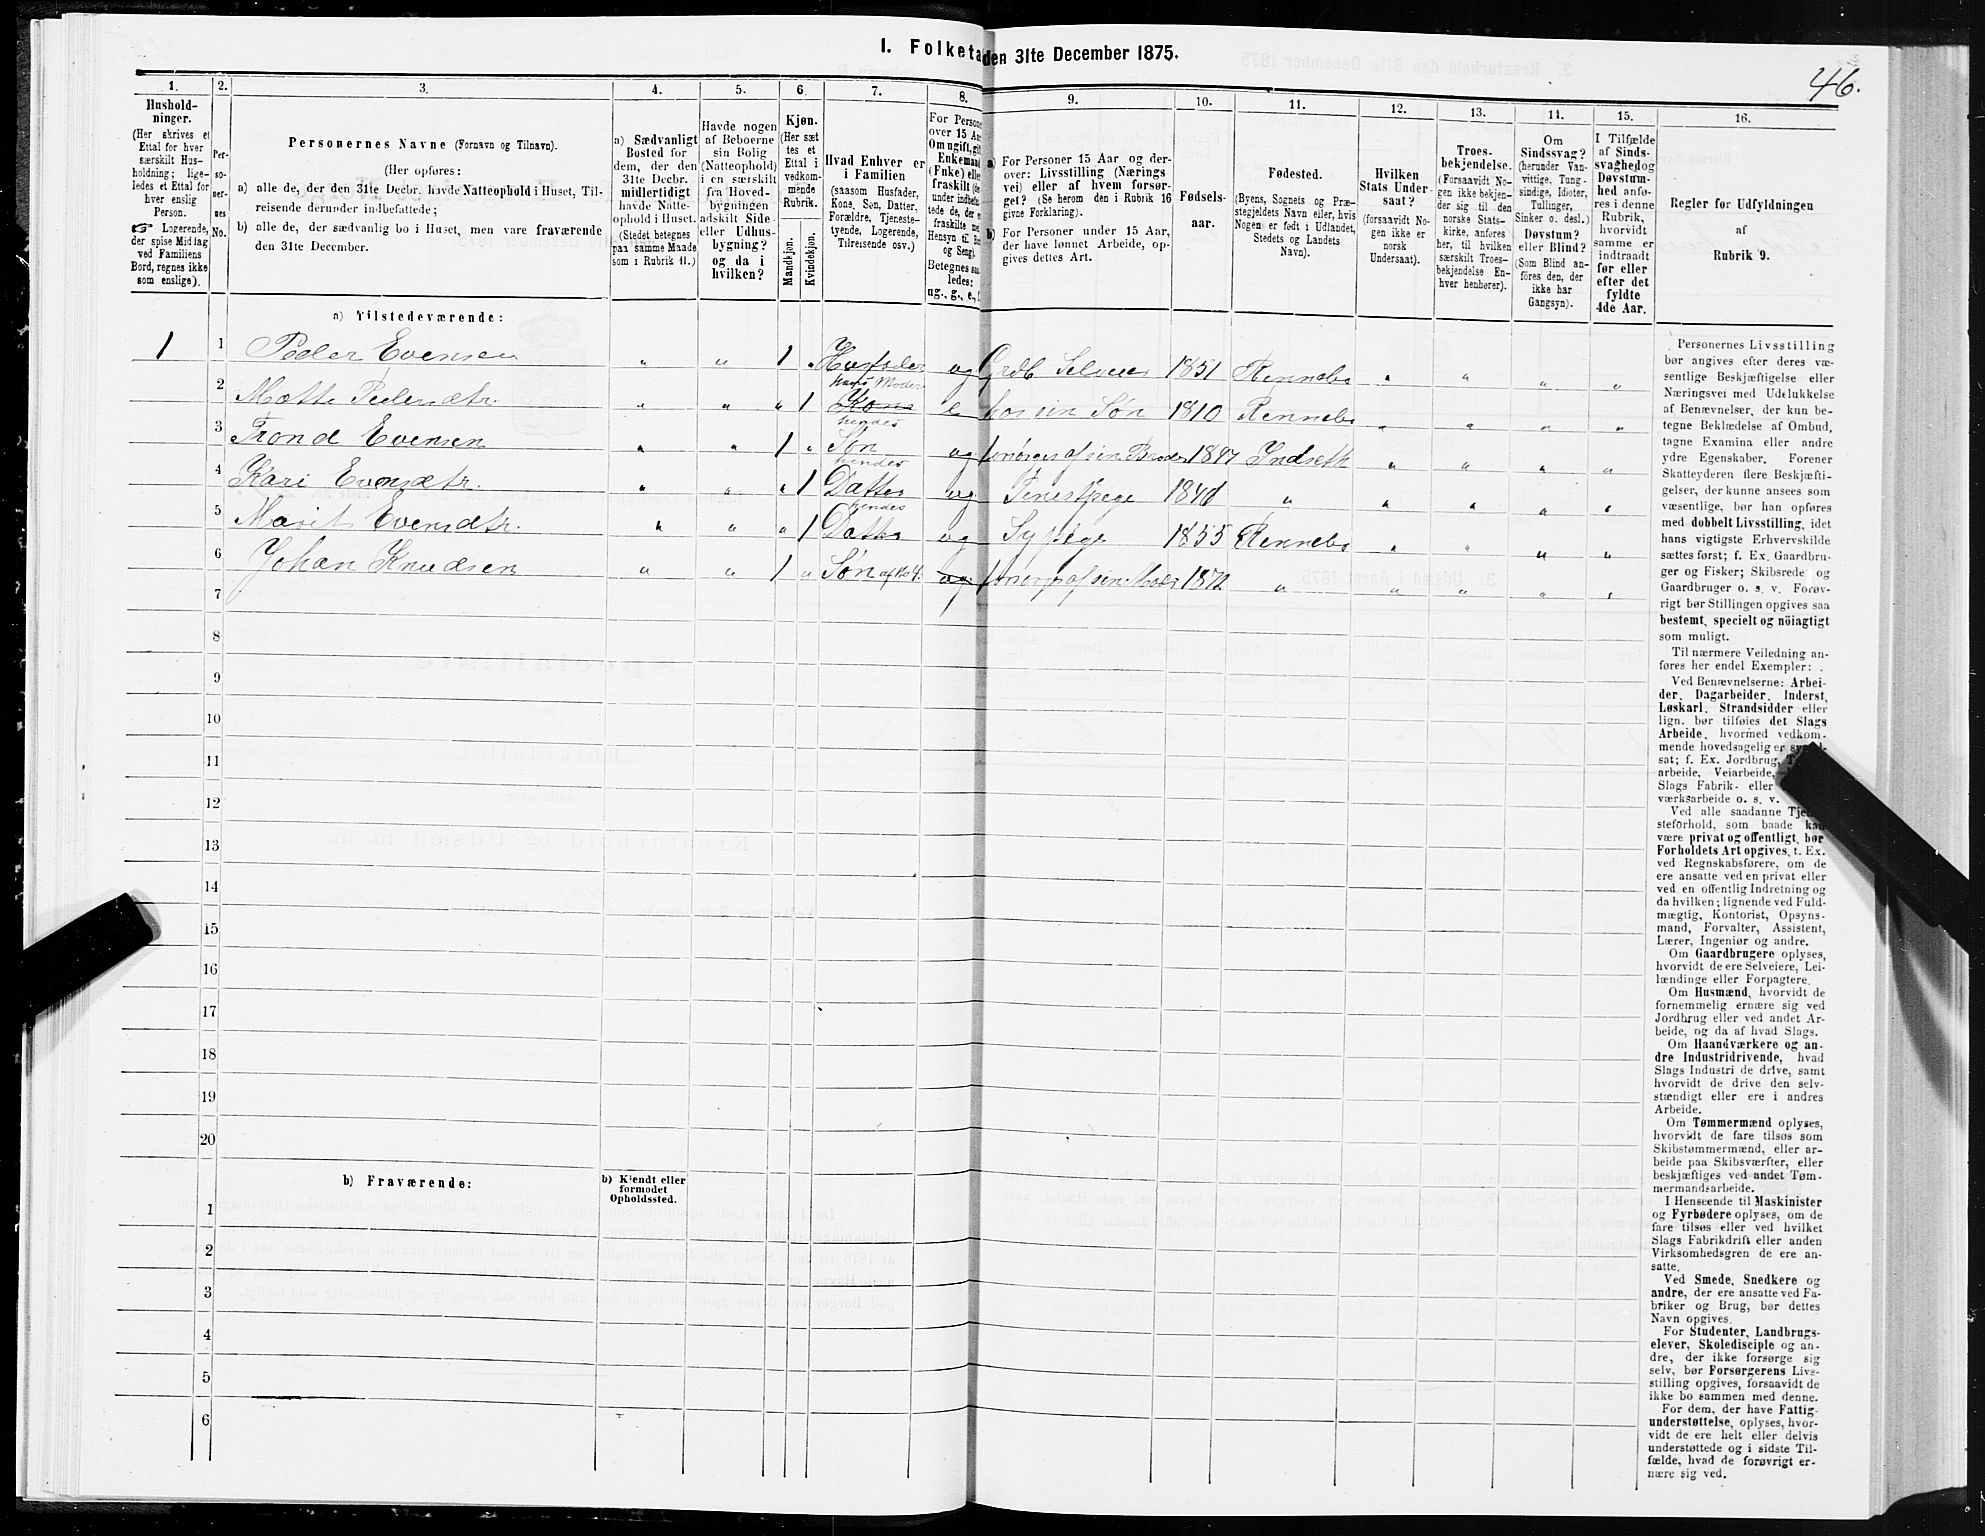 I. Folketa den 31te December 1875.
46.
1.
Hushold-
ninger.
(Her skrives et
Ettal for hver
særskilt Hus-
holdning; lige-
ledes et Ettal for
hver enslig
Person.
Logerende,
der spise Middag
ved Familiens
Bord, regnes ikke
som enslige).
2.
Per-
so-
ner-
nes
No.
3.
Personernes Navne (Fornavn og Tilnavn).
(Her opføres:
a) alle de, der den 31te Decbr. havde Natteophold i Huset, Til-
reisende derunder indbefattede;
b) alle de, der sædvanlig bo i Huset, men vare fraværende
den 31te December.
4.
a) Sædvanligt
Bosted for
dem, der den
31te Decbr.
midlertidigt
havde Natte-
ophold i Huset.
(Stedet betegnes
paa samme Maade
som i Rubrik 11.)
5.
Havde nogen
af Beboerne
sin Bolig
(Natteophold)
i en særskilt
fra Hoved-
bygningen
adskilt Side-
eller Udhus-
bygning?
og da i
hvilken?
6.
Kjøn.
(Her sæt-
tes et
Ettal i
vedkom-
mende
Rubrik.
Mandkjøn.
Kvindekjøn.
7.
Hvad Enhver er
i Familien
(saasom Husfader,
Kone, Søn, Datter,
Forældre, Tjeneste-
tyende, Logerende,
Tilreisende osv.)
8.
For Persone
over 15 Aar
Om ugift, gift
Enkemand
(Enke) eller
fraskilt
under indbefat
tede de, der er
fraskilte med
Hensyn til Bor
og Seng).
Betegnes saa-
ledes:
ug., g., e.,
9.
a) For Personer 15 Aar og der-
over: Livsstilling (Nærings
vei) eller af hvem forsør-
get? (Se herom den i Rubrik 16
givne Forklaring).
b) For Personer under 15 Aar,
der have lønnet Arbeide, op-
gives dettes Art.
10.
Fødsels-
aar.
11.
Fødested.
(Byens, Sognets og Præ-
stegjeldets Navn eller, hvis
Nogen er født i Udlandet,
Stedets og Landets
Navn).
12.
Hvilken
Stats Under-
saat?
(forsaavidt No-
gen ikke er
norsk
Undersaat).
13.
Troes-
bekjendelse.
(Forsaavidt No-
gen ikke bekjen-
der sig til den
norske Stats-
kirke, anføres
her, til hvilken
særskilt Troes-
bekjendelse En-
hver henhører).
14.
Om
Sindssvag?
(herunder Van-
vittige, Tung-
sindige, Idioter,
Tullinger,
Sinker o. desl.)
Døvstum?
eller Blind?
(Som Blind an-
føres den, der
ikke har
Gangsyn).
15.
I Tilfælde
af Sinds-
svaghed og
Døvstum-
hed anfø-
res i denne
Rubrik,
hvorvidt
samme er
indtraadt
før eller
efter det
fyldte
4de Aar.
16.
Regler for Udfyldningen
af
Rubrik 9.
a) Tilstedeværende:
1 1 Peder Evensen " " 1 Husfader ug Grdb Selveier 1851 Rennebo " " " "
2 Mætte Pedersdtr. " " " 1 hans Moder Kone e hos sin Søn 1810 Rennebo " " " "
3 Trond Evensen " " 1 " hendes Søn ug forsørges af sin Broder 1847 Indseth " " " "
4 Kari Evensdtr. " " " 1 hendes Datter ug Tjenestpege 1841 " " " " "
5 Marit Evensdtr. " " " 1 hendes Datter ug Sypige 1855 Rennebo " " " "
6 Johan Knudsen " " 1 " Søn af No 4. ug forsørges af sin Moder 1872 " " " " "
7
8
9
10
11
12
13
14
15
16
17
18
19
20
b) Fraværende:
b) Kjendt eller
formodet
Opholdssted.
1
2
3
4
5
6
Personernes Livsstilling
bør angives efter deres væ-
sentlige Beskjæftigelse eller
Næringsvei med Udelukkelse
af Benævnelser, der kun be-
tegne Beklædelse af Ombud,
tagne Examina eller andre
ydre Egenskaber. Forener
Skatteyderen flere Beskjæfti-
gelser, der kunne ansees som
væsentlige, bør han opføres
med dobbelt Livsstilling, idet
hans vigtigste Erhvervskilde
sættes først; f. Ex. Gaardbru-
ger og Fisker; Skibsreder og
Gaardbruger o. s. v. Forøv-
rigt bør Stillingen opgives saa
bestemt, specielt og nöiagtigt
som muligt.
Til nærmere Veiledning an-
føres her endel Exempler:
Ved Benævnelserne: Arbei-
der, Dagarbeider, Inderst,
Løskarl, Strandsidder eller
lign. bør tilføies det Slags
Arbeide, hvormed vedkom-
mende hovedsagelig er
sat; f. Ex. Jordbrug,
arbeide, Veiarbeide,
Slags Fabrik- eller
værksarbeide o. s. v.
Ved alle saadanne Tje
steforhold, som baade kan
være privat og offentligt, bør
Forholdets Art opgives, t. Ex.
ved Regnskabsførere, om de
ere ansatte ved en privat eller
ved en offentlig Indretning og
da hvilken; lignende ved Fuld-
mægtig, Kontorist, Opsyns-
mand, Forvalter, Assistent,
Lærer, Ingeniør og andre.
Om Gaardbrugere oplyses,
hvorvidt de ere Selveiere, Lei-
lændinge eller Forpagtere.
Om Husmænd, hvorvidt de
fornemmelig ernære sig ved
Jordbrug eller ved andet Ar-
beide, og da af hvad Slags.
Om Haandværkere og an-
dre Industridrivende, hvad
Slags Industri de drive, samt
hvorvidt de drive den selv-
stændigt eller ere i andres
Arbeide.
Om Tømmermænd oplyses,
hvorvidt de fare tilsøs som
Skibstømmermænd, eller ar-
beide paa Skibsværfter, eller
beskjæftiges ved andet Tøm-
mermandsarbeide.
I Henseende til Maskinister
og Fyrbødere oplyses, om de
fare tilsøs eller ved hvilket
Slags Fabrikdrift eller anden
Virksomhedsgren de ere an-
satte.
Ved Smede, Snedkere og
andre, der ere ansatte ved Fa-
briker og Brug, bør dettes
Navn opgives.
For Studenter, Landbrugs-
elever, Skoledisciple og an-
dre, der ikke forsørge sig
selv, bør Forsørgerens Livs-
stilling opgives, forsaavidt de
ikke bo sammen med denne.
For dem, der have Fattig-
understøttelse, oplyses, hvor-
vidt de ere helt eller delvis
understøttede og i sidste Til-
fælde, hvad de forøvrigt er-
nære sig ved.